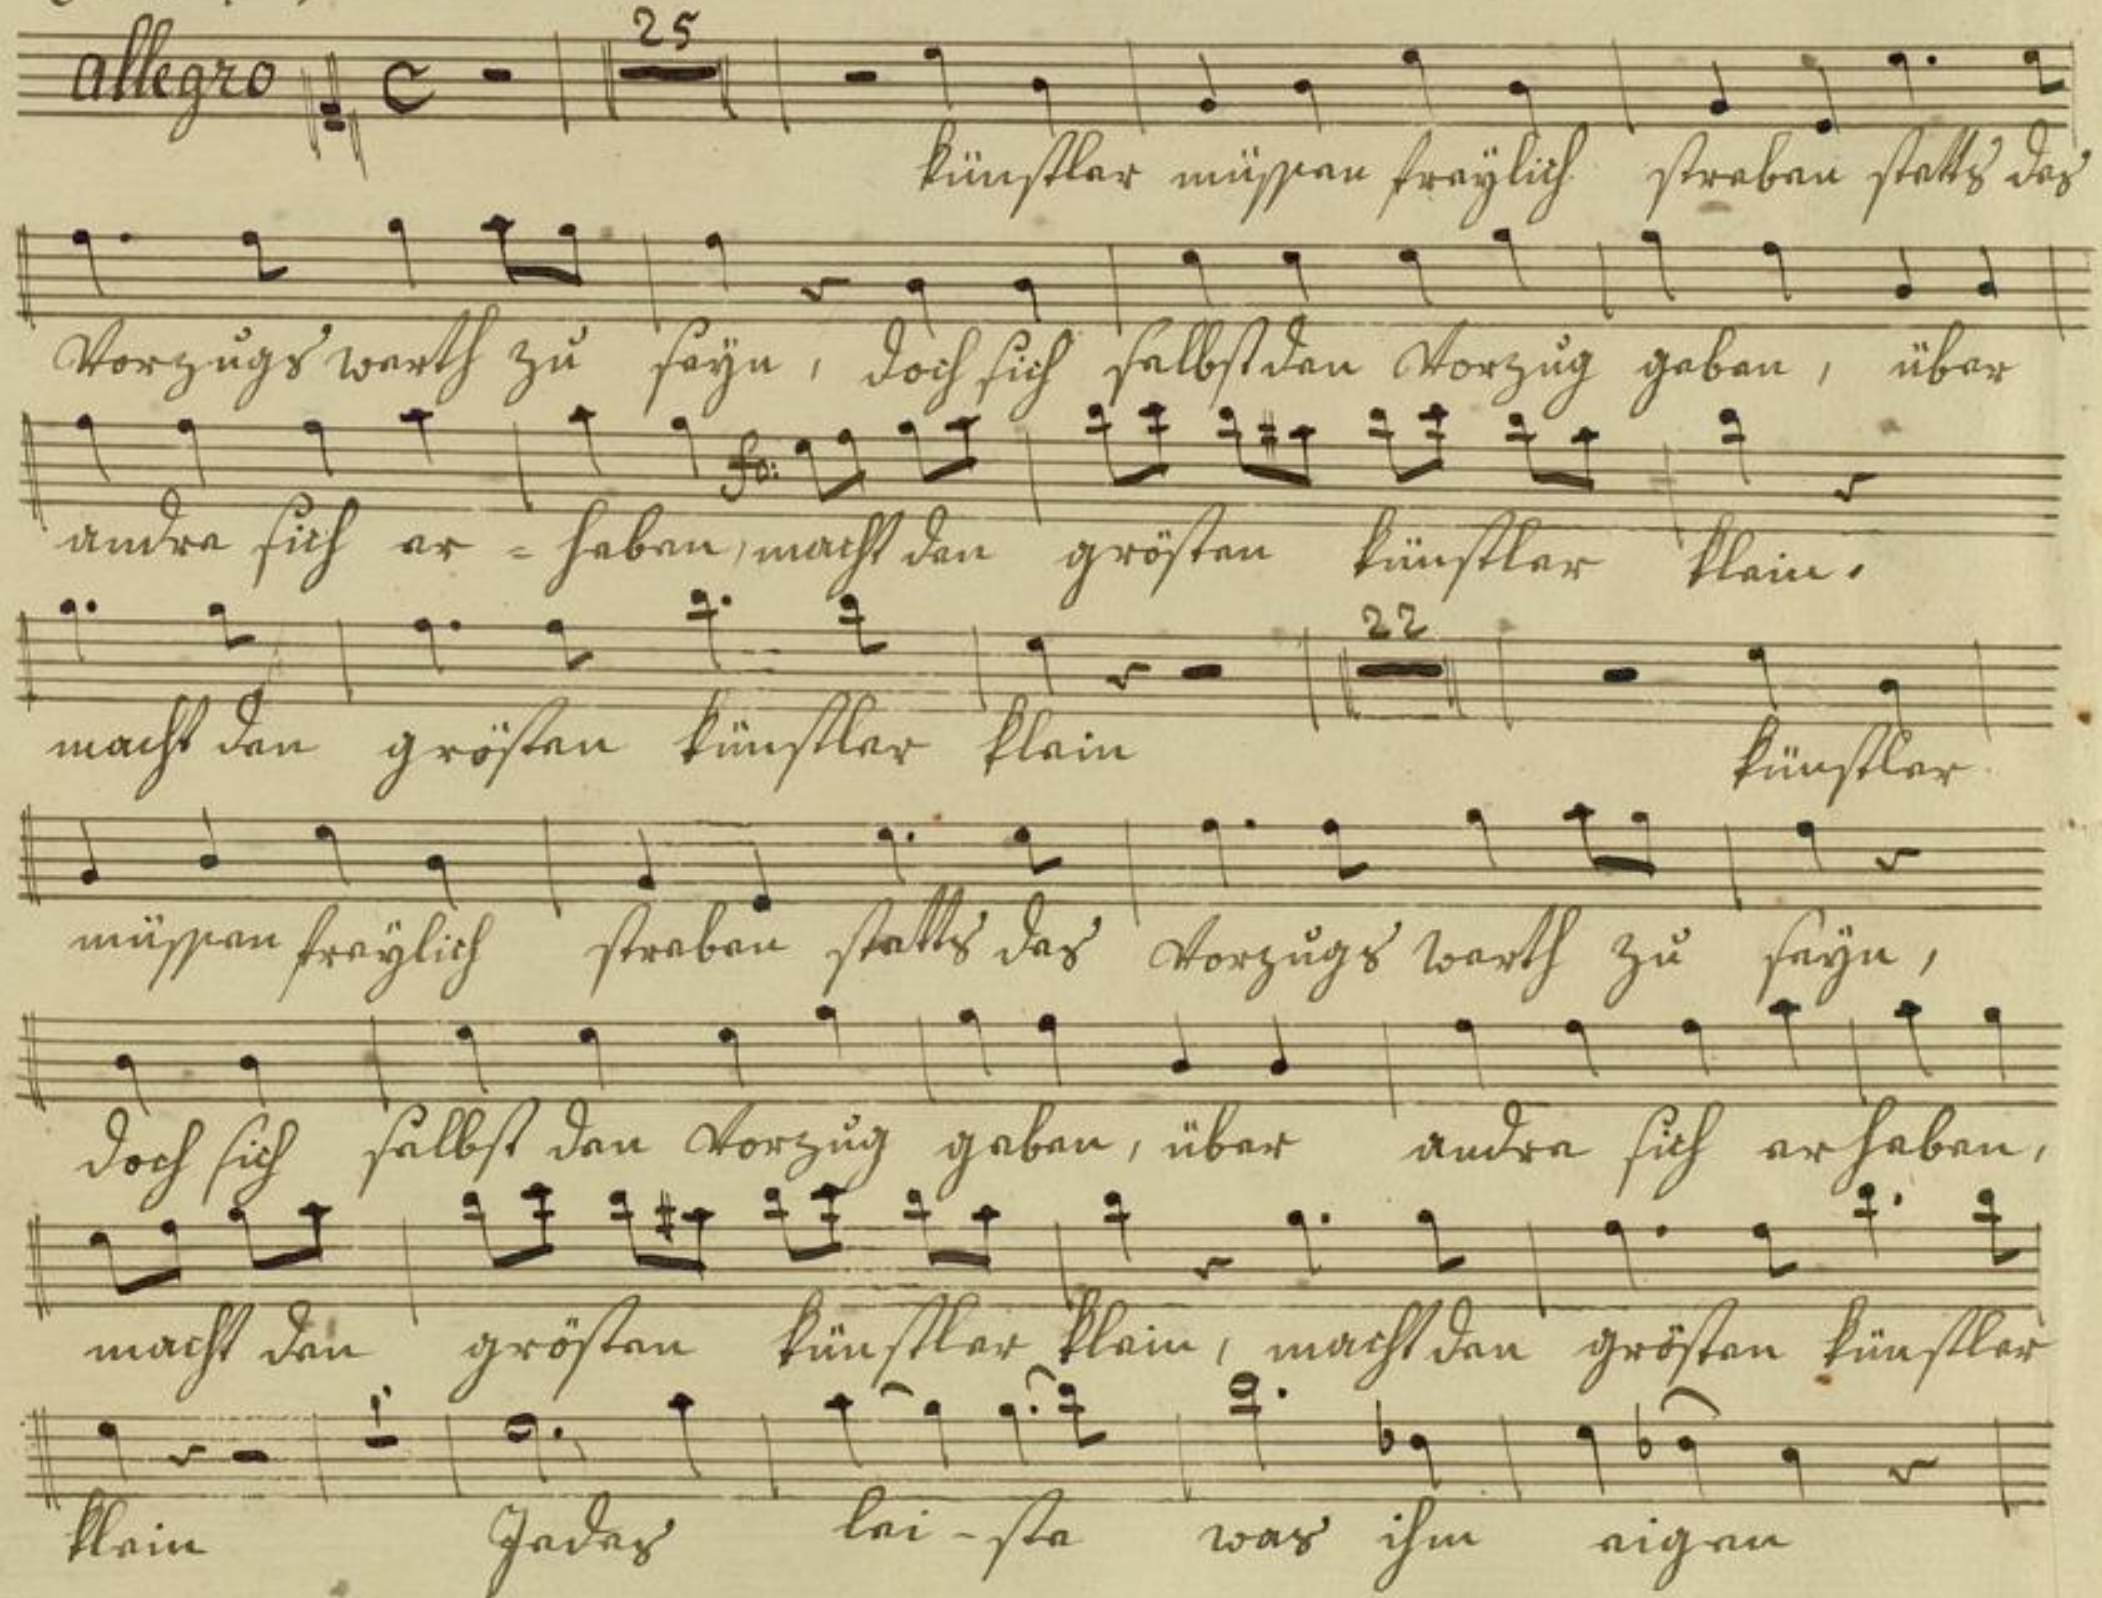 allegro 25
künstler müssen freÿlich streben stetts des
Vorzugs werth zu seÿn, doch sich selbst den Vorzug geben, über
fo:
andre sich er = heben, macht den grösten künstler klein.
22
macht den grösten künstler klein künstler
müssen freÿlich streben stetts des Vorzugs werth zu seÿn,
doch sich selbst den Vorzug geben, über andre sich erheben,
macht den grösten künstler klein, macht den grösten künstler
klein Jedes lei - ste was ihm eigen